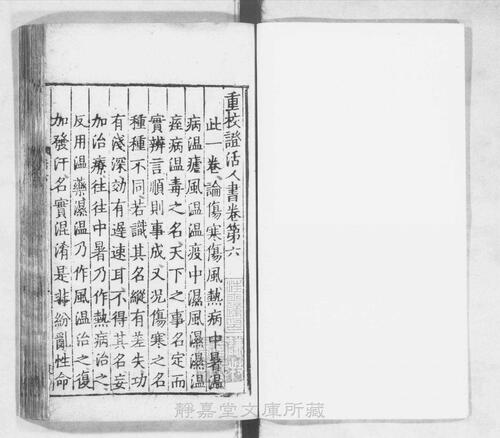 重校證活人書卷第六
此一卷論傷寒傷風熱病中暑溫
病溫瘧風溫溫疫中濕風濕濕溫
痓病溫毒之名天下之事名定而
實辨言順則事成又況傷寒之名
種種不同若識其名縱有差失功
有淺深効有遲速耳不得其名妄
加治療往往中暑乃作熱病治之
反用溫藥濕溫乃作風溫治之復
加發汗名實混淆是非紛亂性命
靜嘉堂文庫所藏